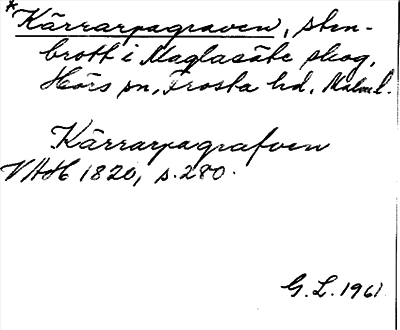 *Kärrarpagraven, sten-
brott i Maglasäte skog,
Hörs sn, Frosta hd, Malm.l.
Kärrarpagrafven
VAH 1820, s. 280.
G.L. 1961